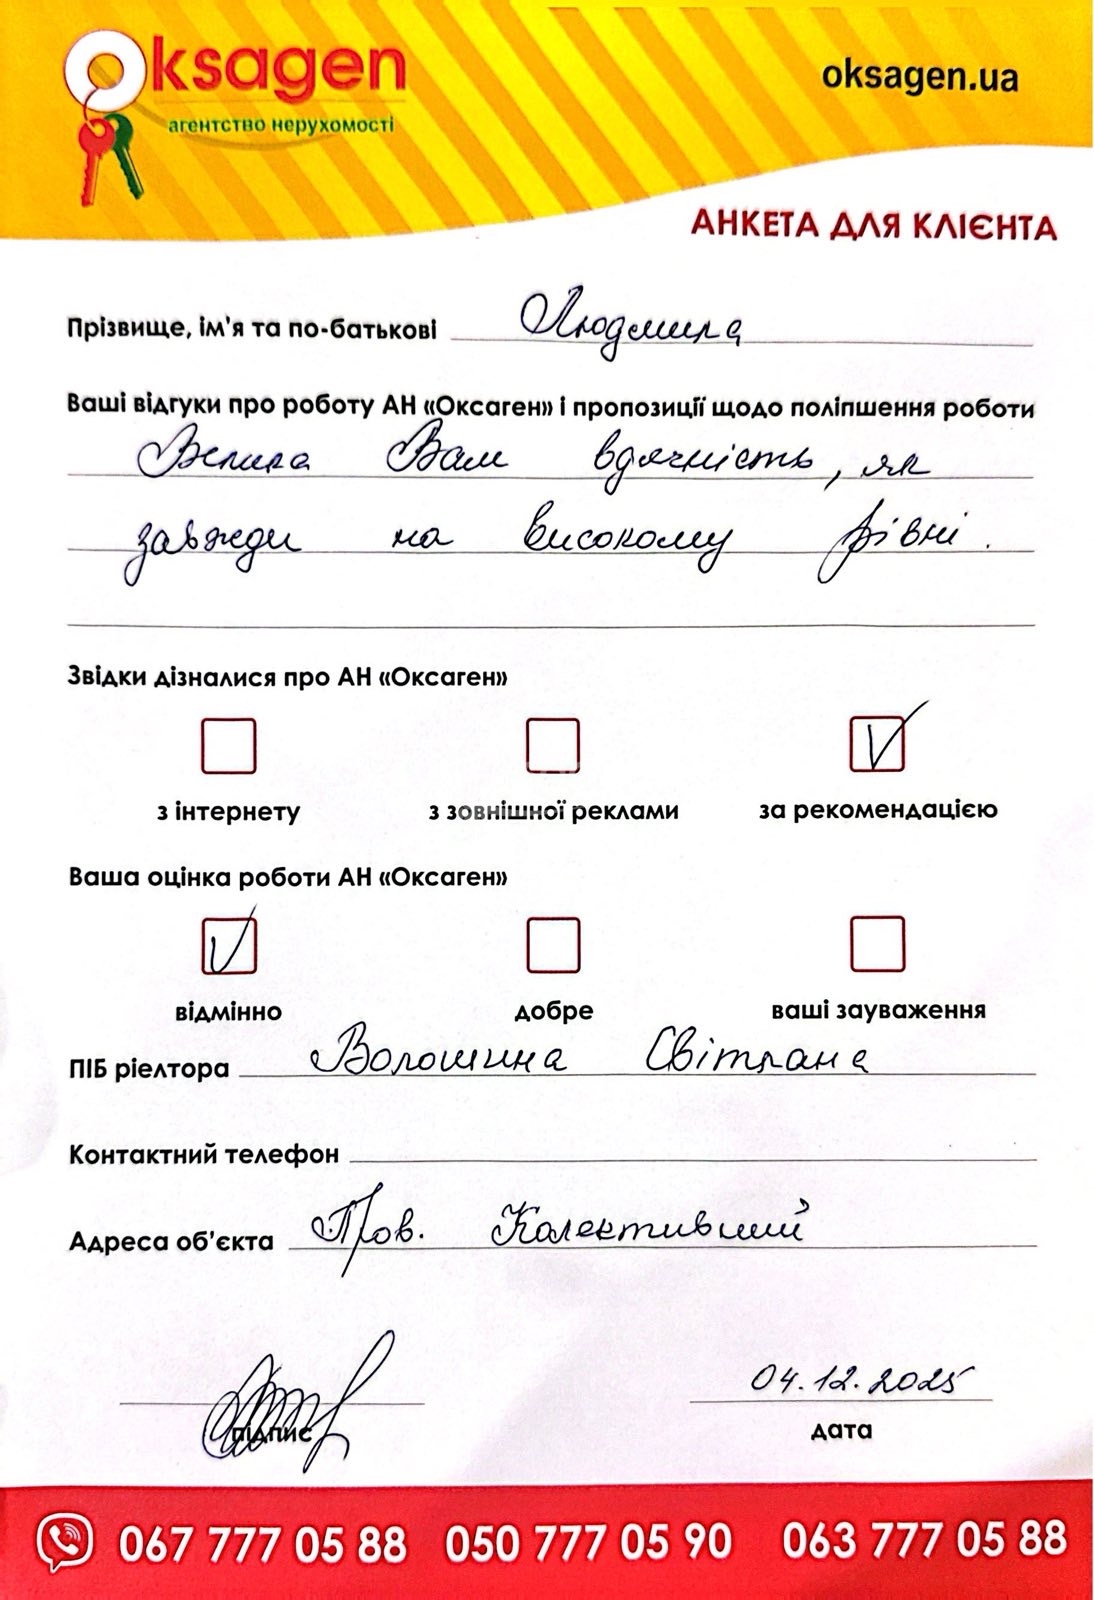 Oksagen
агентство нерухомості
oksagen.ua
АНКЕТА ДЛЯ КЛІЄНТА
Прізвище, ім'я та по-батькові Людмила
Ваші відгуки про роботу АН «Оксаген» і пропозиції щодо поліпшення роботи
Велика Вам вдячність, як
завжди на високому рівні.
Звідки дізналися про АН «Оксаген»
з інтернету з зовнішної реклами за рекомендацією
Ваша оцінка роботи АН «Оксаген»
відмінно добре ваші зауваження
ПІБ ріелтора Волошина Світлана
Контактний телефон
Адреса об'єкта Пров. Колективний
04.12.2025
підпис дата
067 777 05 88 050 777 05 90 063 777 05 88